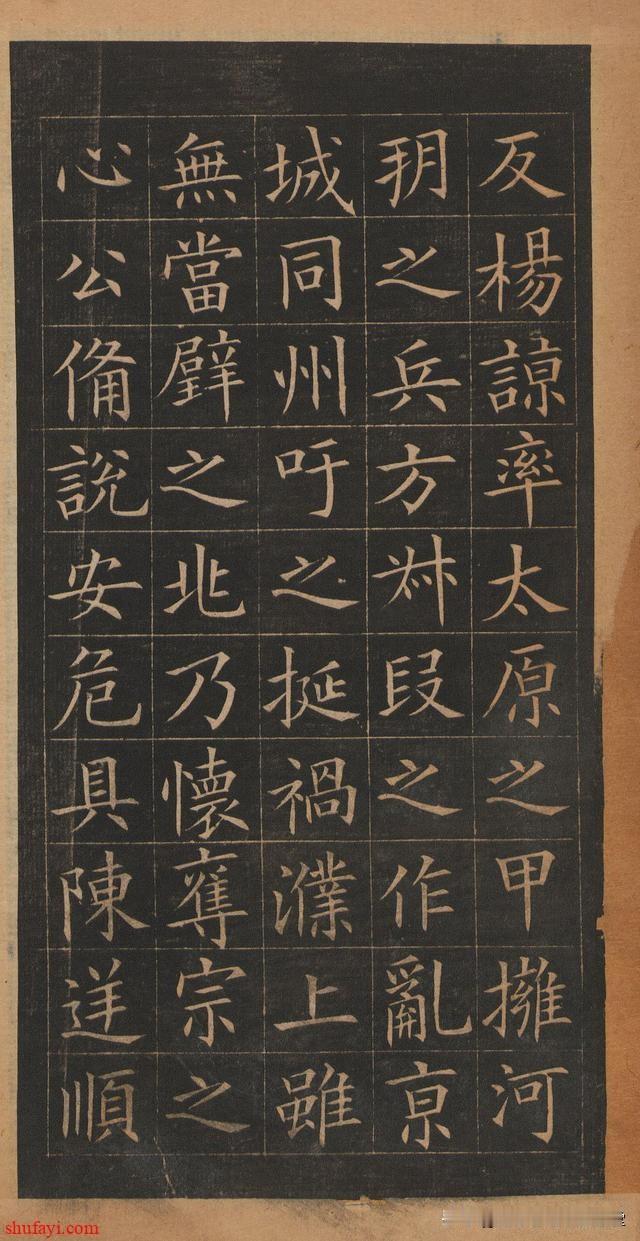 反楊諒率太原之甲擁河
朔之兵方叔段之作亂京
城同州吁之挺禍濮上雖
無當璧之兆乃懷奪宗之
心公備說安危具陳逆順
shufayi.com